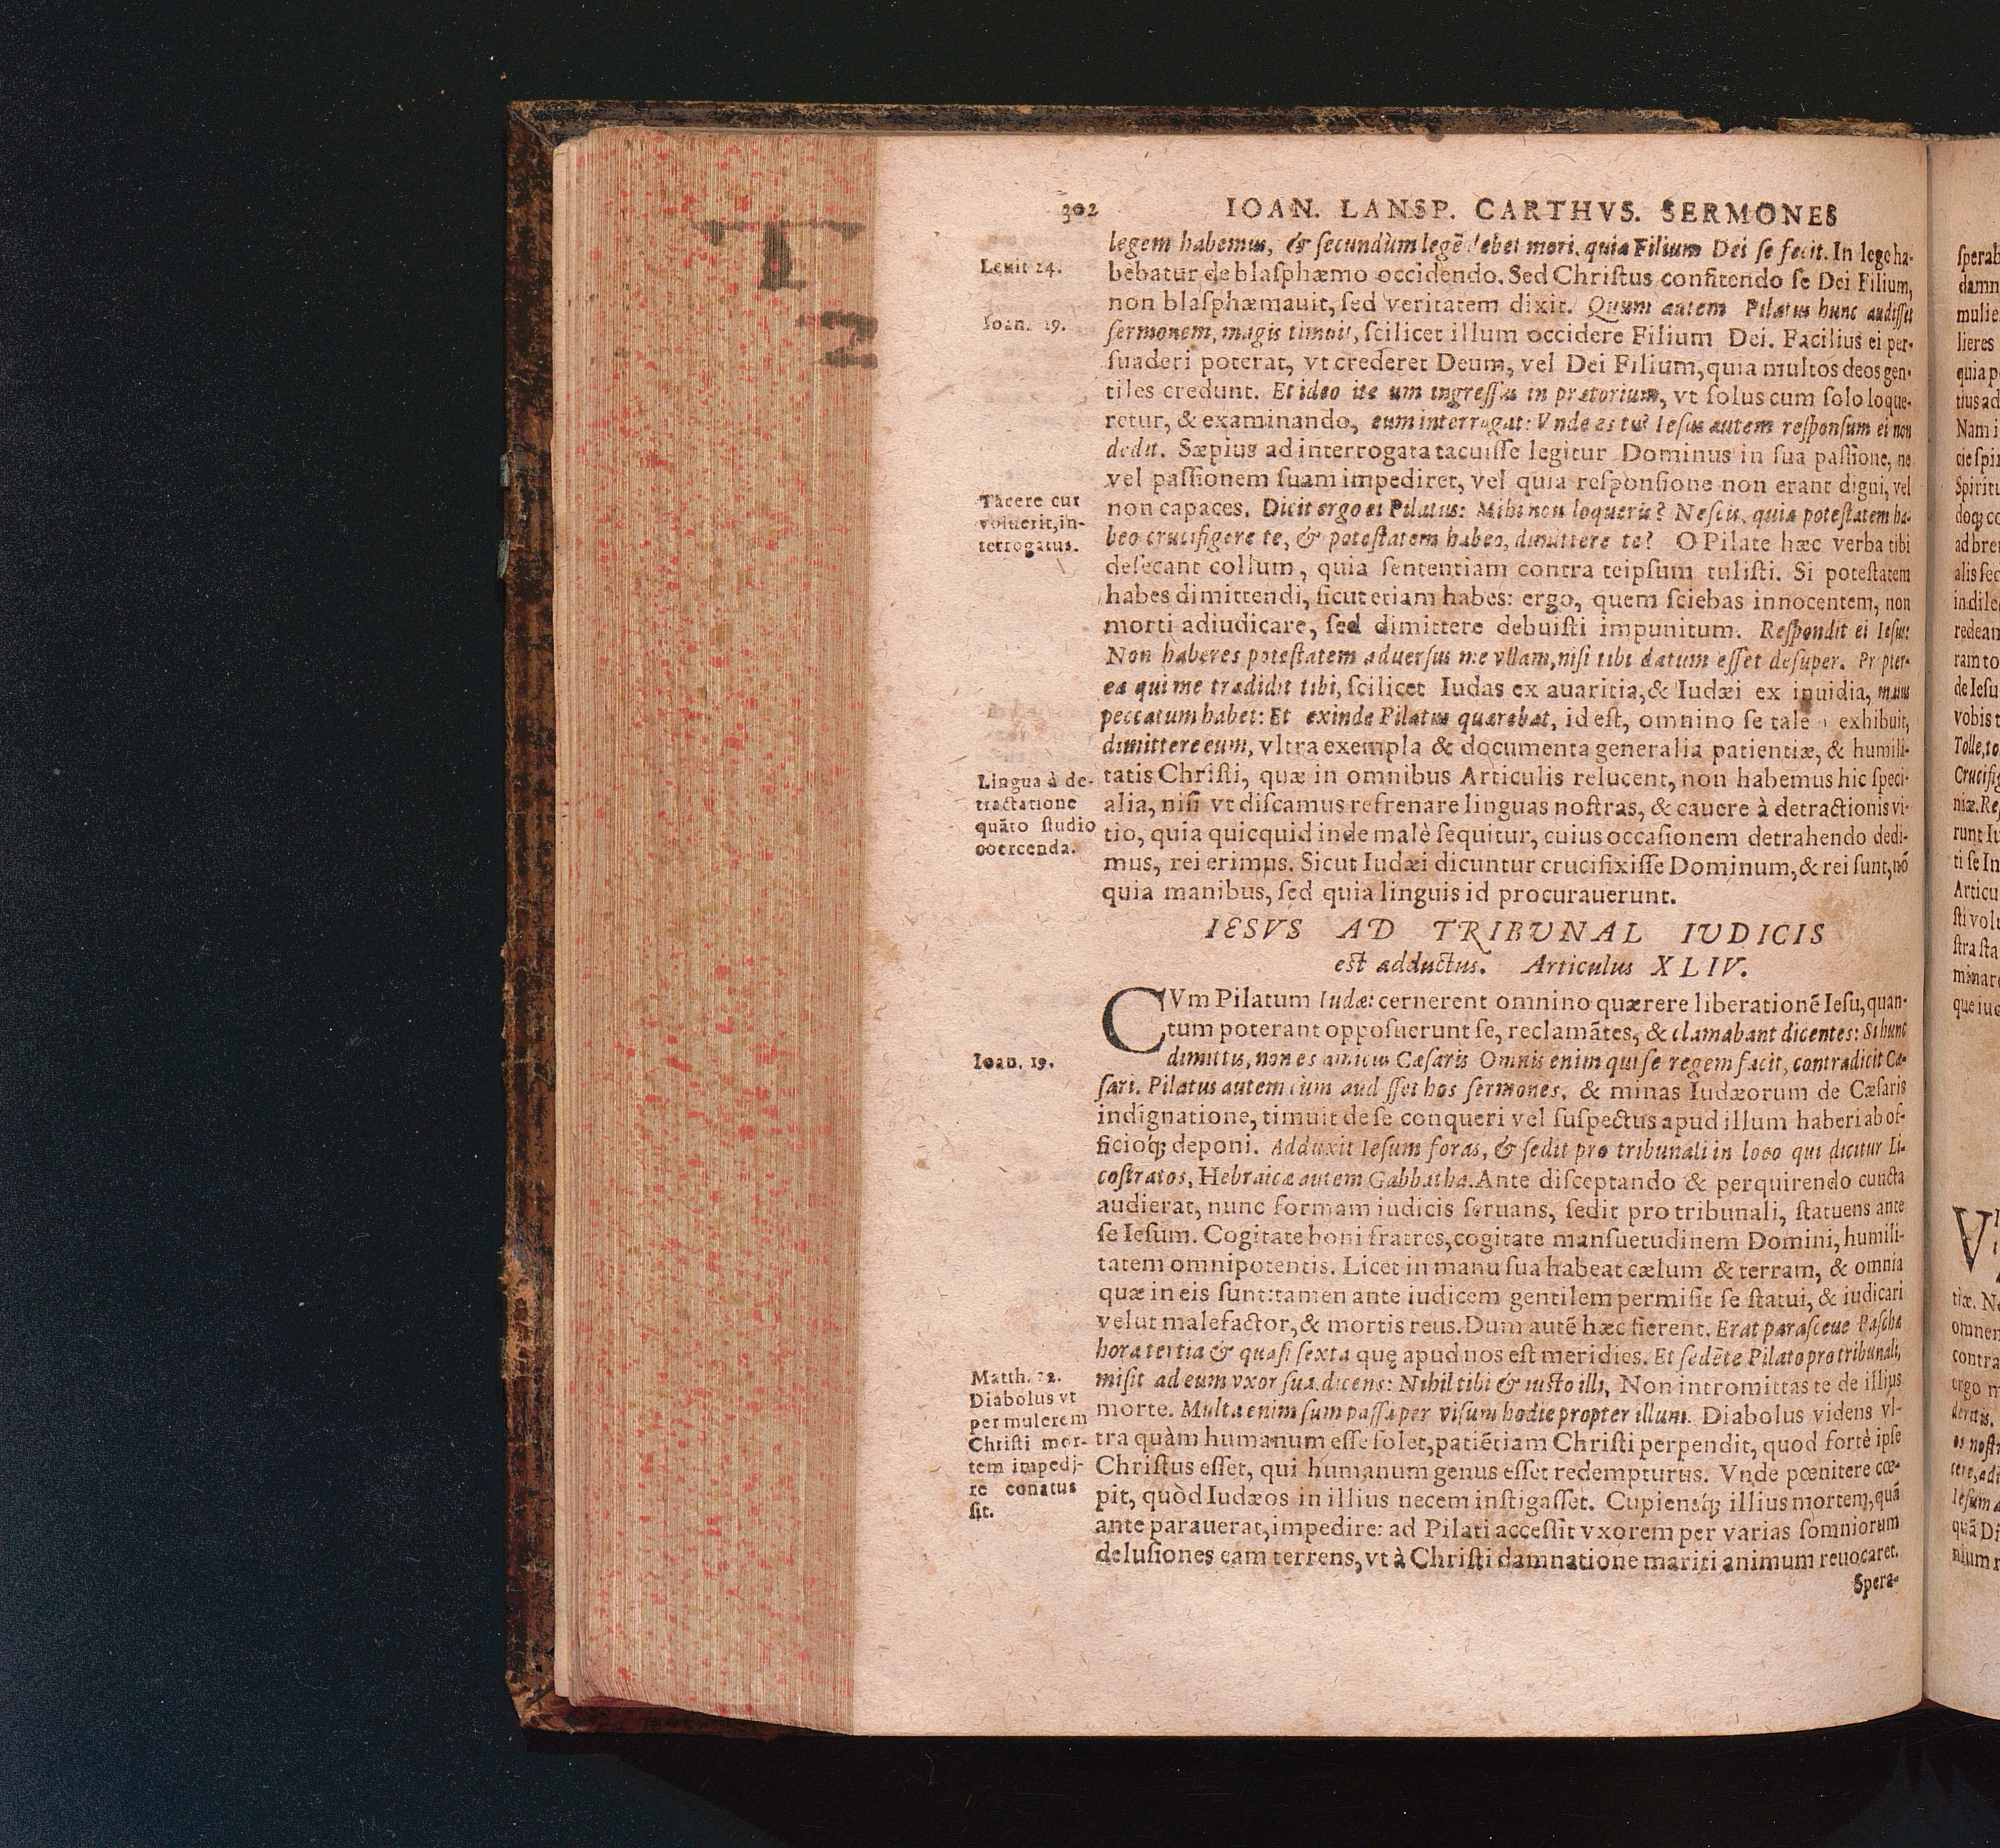 302 IOAN. LANSP. CARTHVS. SERMONES
legem habemus, & secundùm legē debet mori, quia Filium Dei se fecit. In lege ha-
Leuit 24.
bebatur de blasphæmo occidendo. Sed Christus confitendo se Dei Filium,
non blasphæmauit, sed veritatem dixit. Quum autem Pilatus hunc audisset
Ioan. 19.
sermonem, magis timuit, scilicet illum occidere Filium Dei. Facilius ei per-
suaderi poterat, vt crederet Deum, vel Dei Filium, quia multos deos gen-
tiles credunt. Et ideo iterum ingressus in prætorium, vt solus cum solo loque-
retur, & examinando, eum interrogat: Vnde es tu? Iesus autem responsum ei non
dedit. Sæpius ad interrogata tacuisse legitur Dominus in sua passione, ne
vel passionem suam impediret, vel quia responsione non erant digni, vel
Tacere cur
voluerit, in-
terrogatus.
non capaces. Dicit ergo ei Pilatus: Mihi non loqueris? Nescis, quia potestatem ha-
beo crucifigere te, & potestatem habeo, dimittere te? O Pilate hæc verba tibi
desecant collum, quia sententiam contra teipsum tulisti. Si potestatem
habes dimittendi, sicut etiam habes: ergo, quem sciebas innocentem, non
morti adiudicare, sed dimittere debuisti impunitum. Respondit ei Iesus:
Non haberes potestatem aduersus me vllam, nisi tibi datum esset desuper. Propter-
ea qui me tradidit tibi, scilicet Iudas ex auaritia, & Iudæi ex inuidia, maius
peccatum habet: Et exinde Pilatus quærebat, id est, omnino se talem exhibuit,
dimittere eum, vltra exempla & documenta generalia patientiæ, & humili-
Lingua à de-
tractatione
quāto studio
coercenda.
tatis Christi, quæ in omnibus Articulis relucent, non habemus hic speci-
alia, nisi vt discamus refrenare linguas nostras, & cauere à detractionis vi-
tio, quia quicquid inde malè sequitur, cuius occasionem detrahendo dedi-
mus, rei erimus. Sicut Iudæi dicuntur crucifixisse Dominum, & rei sunt, nō
quia manibus, sed quia linguis id procurauerunt.
IESVS AD TRIBVNAL IVDICIS
est adductus. Articulus XLIV.
CVm Pilatum Iudæi cernerent omnino quærere liberationē Iesu, quan-
tum poterant opposuerunt se, reclamātes, & clamabant dicentes: Si hunc
Ioan. 19.
dimittis, non es amicus Cæsaris Omnis enim qui se regem facit, contradicit Cæ-
sari. Pilatus autem cum audisset hos sermones, & minas Iudæorum de Cæsaris
indignatione, timuit de se conqueri vel suspectus apud illum haberi ab of-
ficioq; deponi. Adduxit Iesum foras, & sedit pro tribunali in loco qui dicitur Li-
costratos, Hebraicæ autem Gabbatha. Ante disceptando & perquirendo cuncta
audierat, nunc formam iudicis seruans, sedit pro tribunali, statuens ante
se Iesum. Cogitate boni fratres, cogitate mansuetudinem Domini, humili-
tatem omnipotentis. Licet in manu sua habeat cælum & terram, & omnia
quæ in eis sunt: tamen ante iudicem gentilem permisit se statui, & iudicari
velut malefactor, & mortis reus. Dum autē hæc fierent. Erat parasceue Pascha
hora tertia & quasi sexta quę apud nos est meridies. Et sedēte Pilato pro tribunali,
Matth. 72.
Diabolus vt
per mulerem
Christi mor-
tem impedi-
re conatus
sit.
misit ad eum vxor sua. dicens: Nihil tibi & iusto illi, Non intromittas te de illius
morte. Multa enim sum passa per visum hodie propter illum. Diabolus videns vl-
tra quàm humanum esse solet, patiētiam Christi perpendit, quod fortè ipse
Christus esset, qui humanum genus esset redempturus. Vnde pœnitere cœ-
pit, quòd Iudæos in illius necem instigasset. Cupiensq; illius mortem, quā
ante parauerat, impedire: ad Pilati accessit vxorem per varias somniorum
delusiones eam terrens, vt à Christi damnatione mariti animum reuocaret.
Spera-